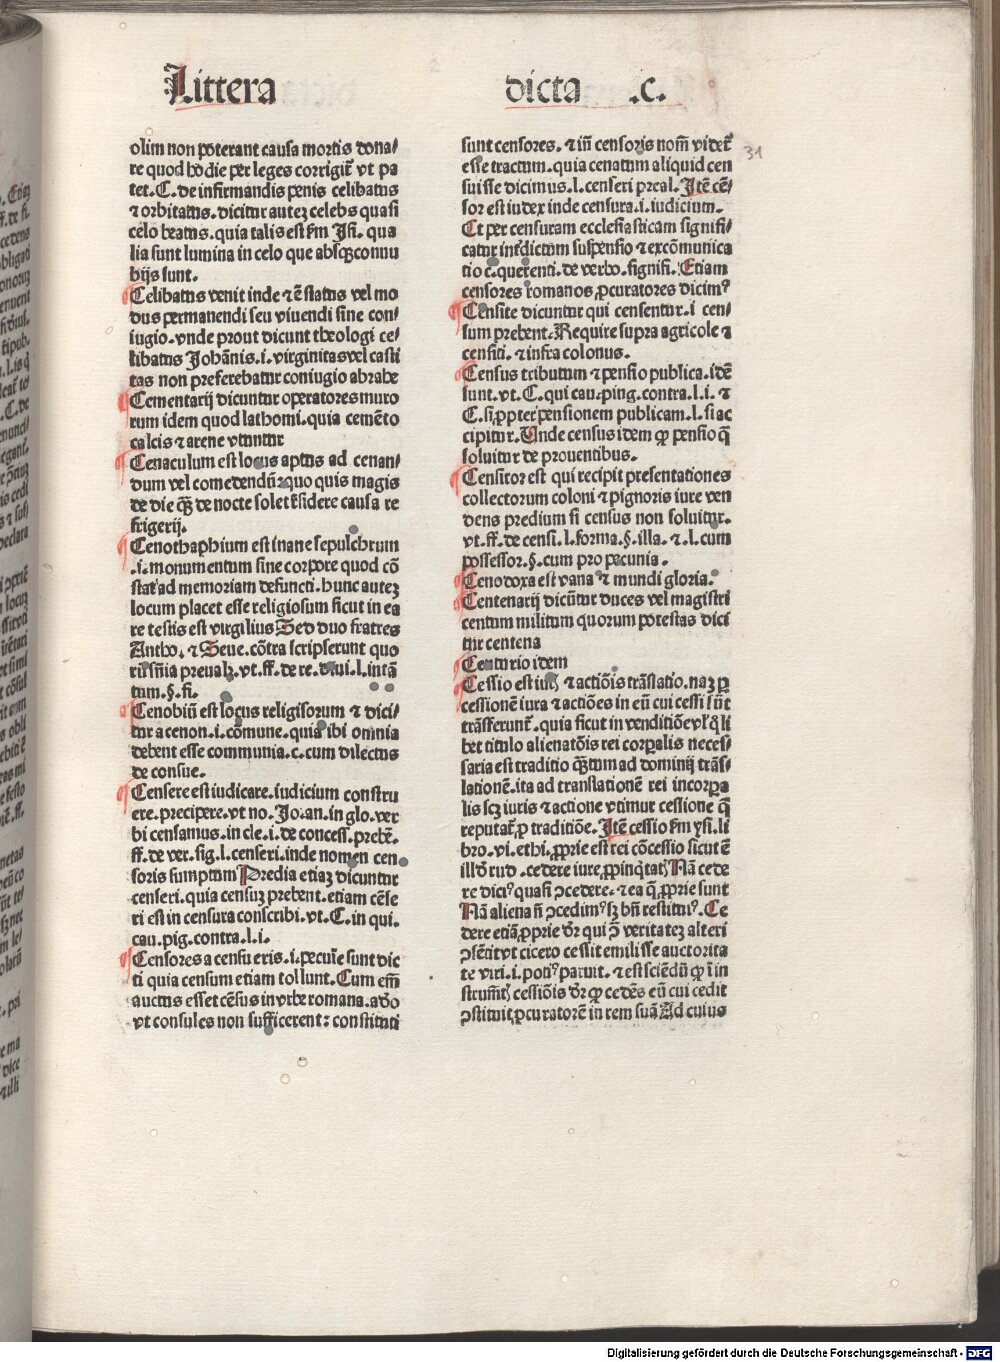 Littera dicta .c.
31
olim non poterant causa mortis dona/
re quod hodie per leges corrigit̃ vt pa
tet. C. de infirmandis penis celibatus
⁊ orbitatus. dicitur autez celebs quasi
celo beatus. quia talis est s̃m Isi. qua
lia sunt lumina in celo que absqꝫ connu
bijs sunt.
Celibatus venit inde ⁊ ẽ status vel mo
dus permanendi seu viuendi sine con/
iugio. vnde prout dicunt theologi ce/
libatus Johãnis. i. virginitas vel casti
tas non preferebatur coniugio abrahe
Cementarij dicuntur operatores muro
rum idem quod lathomi. quia cemẽto
calcis ⁊ arene vtuntur
Cenaculum est locus aptus ad cenan/
dum vel comedendũ: quo quis magis
de die q̃ꝫ de nocte solet r̃sidere causa re
frigerij.
Cenothaphium est inane sepulchrum
.i. monumentum sine corpore quod cõ
stat ad memoriam defuncti. hunc autez
locum placet esse religiosum sicut in ea
re testis est virgilius Sed duo fratres
Antho. ⁊ Seue. cõtra scripserunt quo
rũ sñia preualꝫ. vt. ff. de re. diui. l. intã
tum. §. fi.
Cenobiũ est locus religisorum ⁊ dici/
tur a cenon. i. cõmune. quia ibi omnia
debent esse communia. c. cum dilectus
de consue.
Censere est iudicare. iudicium constru
ere. precipere. vt no. Jo. an. in glo. ver
bi censamus. in cle. i. de concess. prebẽ.
ff. de ver. sig. l. censeri. inde nomen cen
soris sumptum Predia etiaz dicuntur
censeri. quia censuz prebent. etiam cẽse
ri est in censura conscribi. vt. C. in qui.
cau. pig. contra. l. i.
Censores a censu eris. i. pecuĩe sunt dic
ti quia censum etiam tollunt. Cum em̃
auctus esset cẽsus in vrbe romana. ado
vt consules non sufficerent: constituti
sunt censores. ⁊ iñ censoris nom̃ videt̃
esse tractum. quia cenatum aliquid cen
suisse dicimus. l. censeri preal. Itẽ cẽ/
sor est iudex inde censura. i. iudicium.
Et per censuram ecclesiasticam signifi/
catur int̃dictum suspensio ⁊ excõmunica
tio c. querenti. de verbo. signifi. Etiam
censores romanos ꝓcuratores dicimꝰ
Censite dicuntur qui censentur. i. cen/
sum prebent. Require supra agricole ⁊
censiti. ⁊ infra colonus.
Census tributum ⁊ pensio publica. idẽ
sunt. vt. C. qui cau. ping. contra. l. i. ⁊
C. si ꝓpter pensionem publicam. l. si ac
cipitur. Unde census idem ꝙ pensio q̃
soluitur de prouentibus.
Censitor est qui recipit presentationes
collectorum coloni ⁊ pignoris iure ven
dens predium si census non soluitur.
vt. ff. de censi. l. forma. §. illa. ⁊. l. cum
possessor. §. cum pro pecunia.
Cenodoxa est vana ⁊ mundi gloria.
Centenarij dicũtur duces vel magistri
centum militum quorum potestas dici
tur centena
Centurio idem
Cessio est iur̃ ⁊ actiõis trãslatio. naz ꝑ
cessionẽ iura ⁊ actiões in eũ cui cessi sũt
trãsferuntˀ. quia sicut in venditiõe vl' q̃ li
bet titulo alienatõis rei corꝑalis neces/
saria est traditio q̃tum ad dominij trãs/
lationẽ. ita ad translationẽ rei incorꝑa
lis scꝫ iuris ⁊ actione vtimur cessione q̃
reputat̃ ꝓ traditiõe. Itẽ cessio s̃m ysi. li
bro. vi. ethi. ꝓprie est rei cõcessio sicut ẽ
ill'd rud. cedere iure ꝓpinq̃tatꝭ Nã cede
re dicit̉ quasi ꝯcedere. ⁊ ea q̃ ꝓprie sunt
Nã aliena ñ ꝯcedimꝰ sꝫ bñ restituit̉. Ce
dere etiã ꝓprie dr̃ qui ꝯ̃ veritatez alteri
ꝯsẽtit vt cicero cessit emilisse auctorita
te viri. i. potiꝰ paruit. ⁊ est sciẽdũ ꝙ iin
strum̃tꝭ cessiõis dr̃ ꝙ cedẽs eũ cui cedit
ꝯstituit ꝓcuratorẽ in rem suã Ad cuius
Digitalisierung gefördert durch die Deutsche Forschungsgemeinschaft - DFG